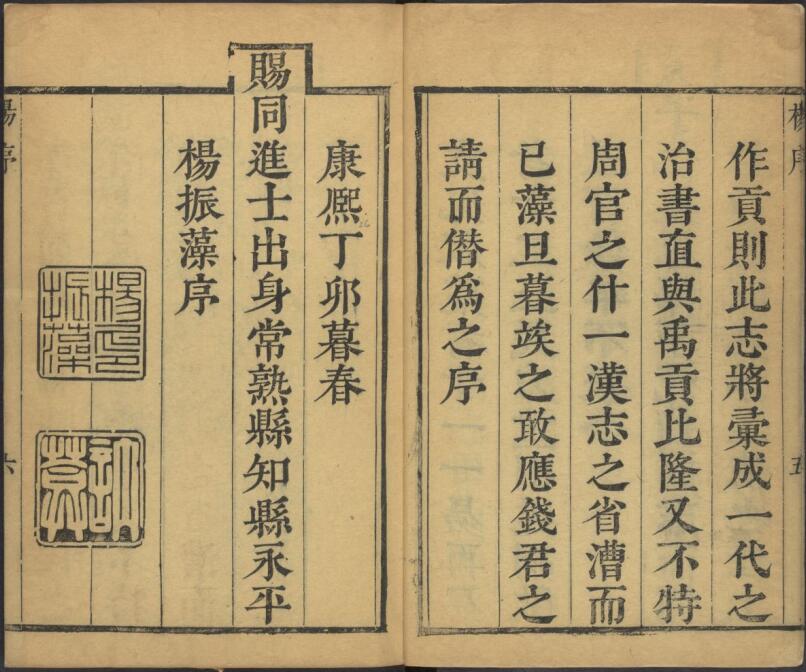 楊序 五
作貢則此志將彙成一代之
治書直與禹貢比隆又不特
周官之什一漢志之省漕而
已藻旦暮竢之敢應錢君之
請而僭爲之序
康熈丁卯暮春
賜同進士出身常熟縣知縣永平
楊振藻序
楊印
振藻
楊序 六